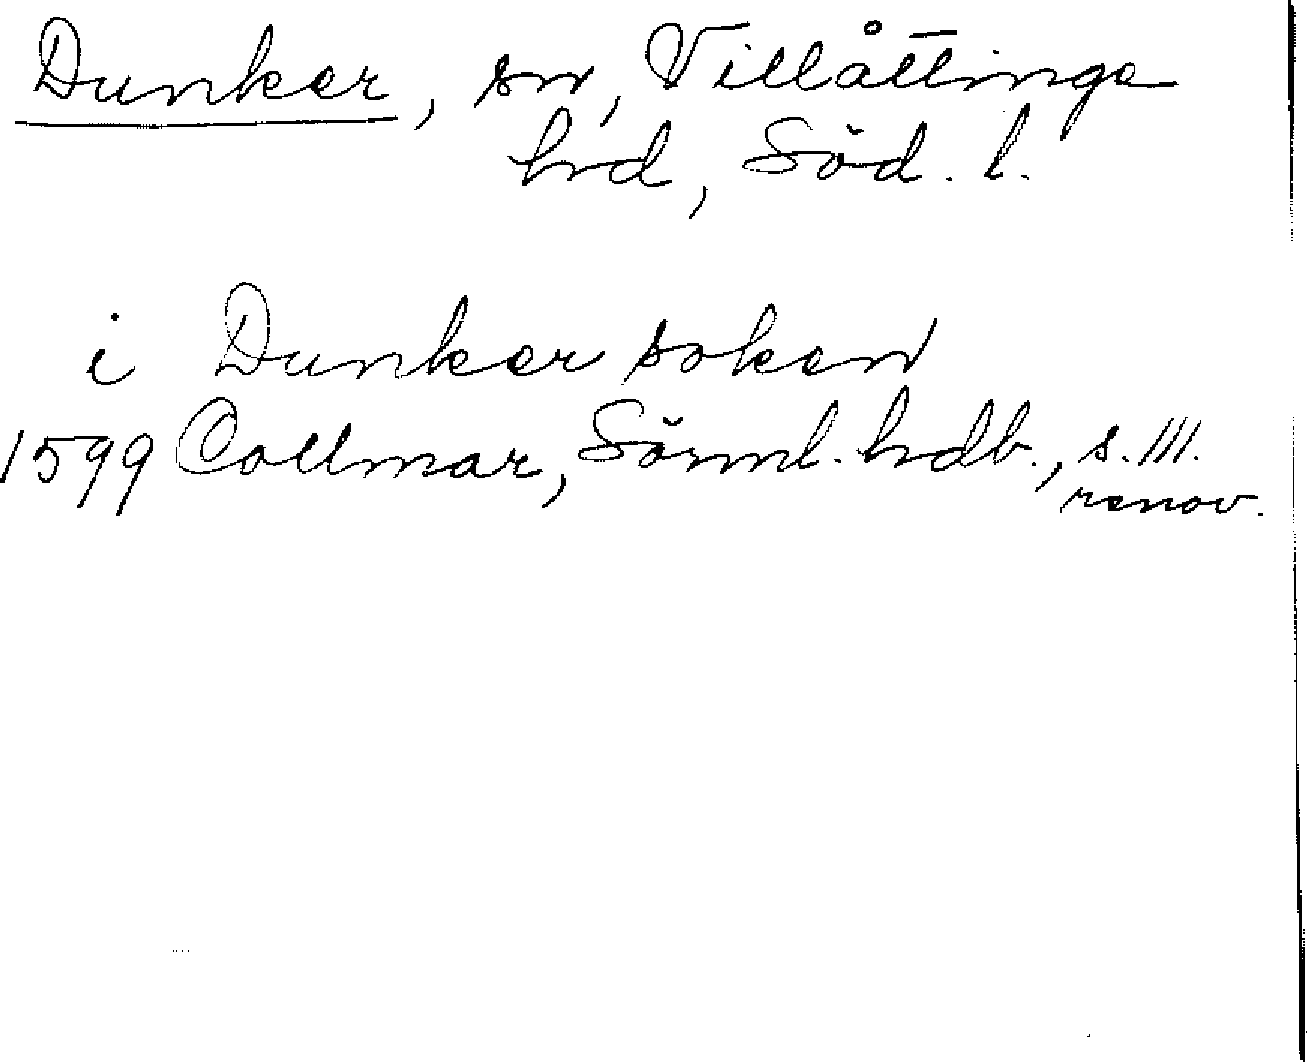 Dunker, sn, Villåttinge
hrd, Söd. l.
i Dunker soken
1599 Collmar, Sörml. hdb., s. 111.
renov.